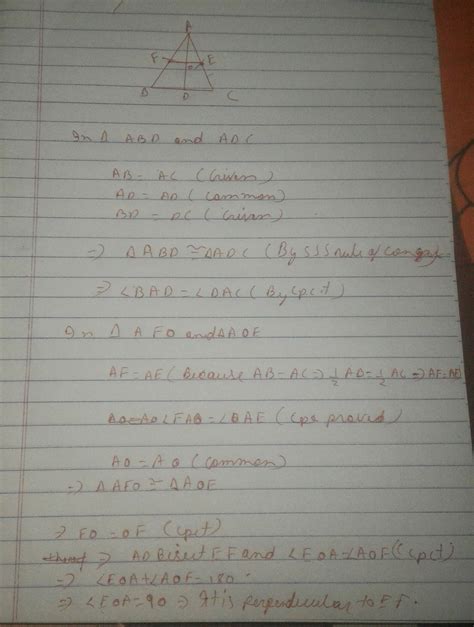 A
F
O
E
B
D
C
In Δ ABD and ADC
AB = AC (Given)
AD = AD (common)
BD = DC (Given)
⇒ ΔABD ≅ ΔADC (By SSS rule of
⇒ ∠BAD = ∠DAC (By cpct)
In Δ AFO and ΔAOE
AF = AE (Because AB = AC ⇒ 1/2 AB = 1/2 AC ⇒ AF = AE)
∠FAO = ∠OAE (proved)
AO = AO (common)
⇒ ΔAFO ≅ ΔAOE
⇒ FO = OF (cpct)
⇒ AD Bisect FF and ∠EOA = ∠AOF (cpct)
⇒ ∠EOA + ∠AOF = 180
⇒ ∠EOA = 90 ⇒ It is perpendicular to EF.